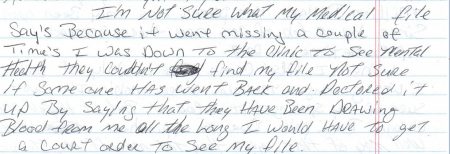 I'm Not Sure what My Medical file
Say's Because it went missing a couple of
Time's I was Down To the Clinic to See Mental
Health they couldn't find my file Not Sure
If Some one HAs Went BAck and Doctored it
up By Saying that they HAve Been DRAwing
Blood from me all the long I would HAve to get
a Court order To See My file.